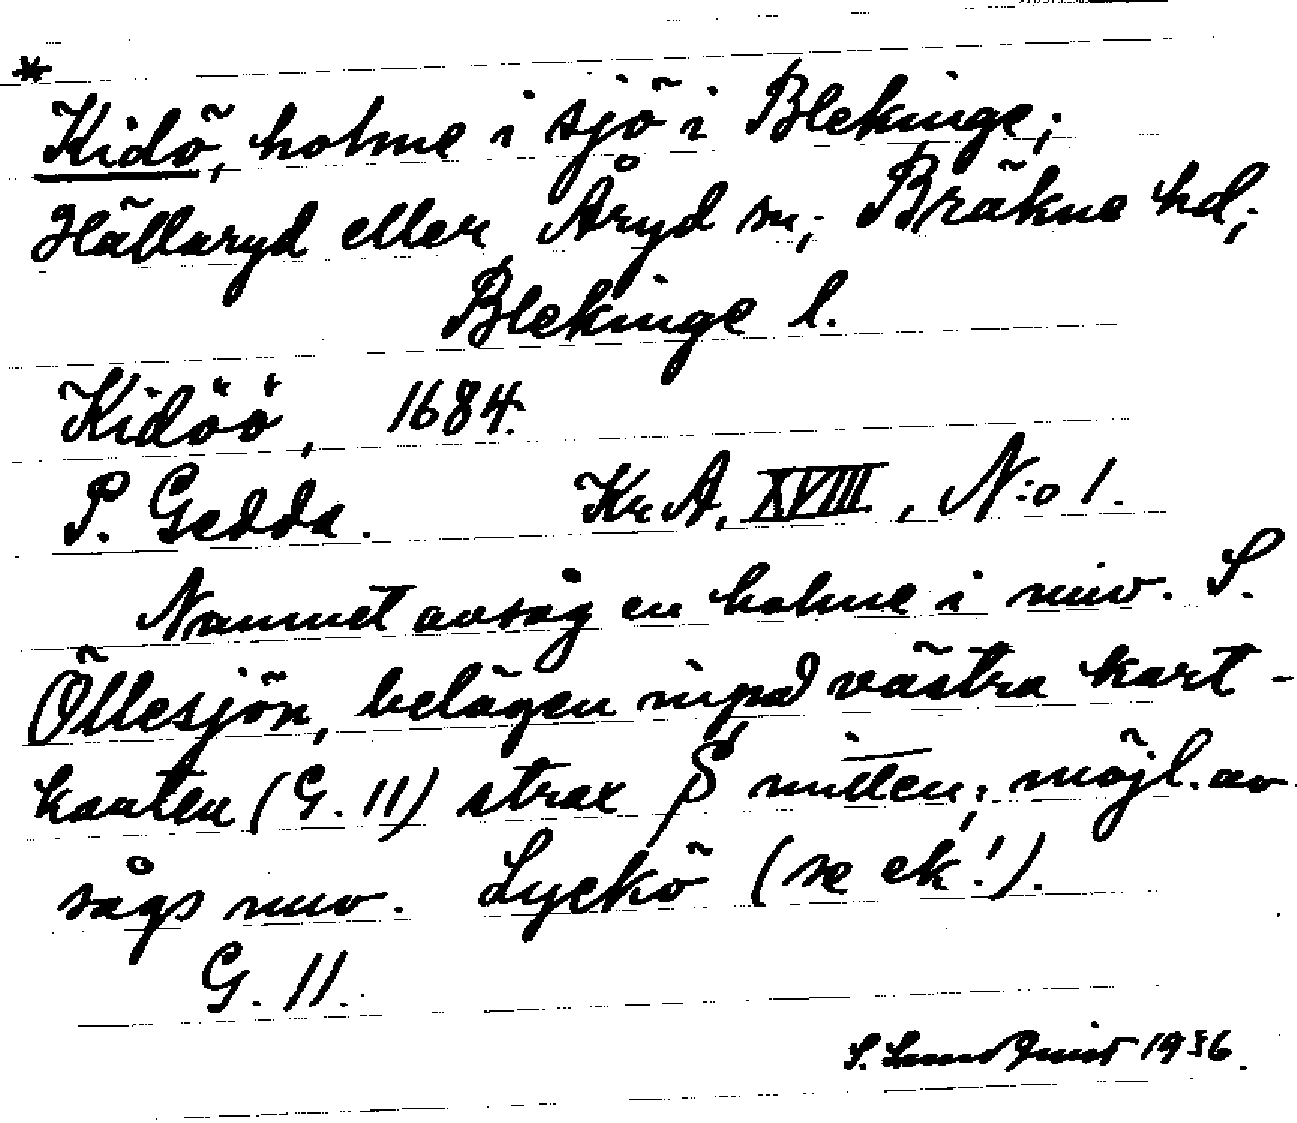 *
Kidö, holme i sjö i Blekinge;
Hällaryd eller Åryd sn; Bräkne hd;
Blekinge l.
Kidöö, 1684.
P. Gedda. Kr. A. XVIII, N:o 1.
Namnet avsåg en holme i nuv. S.
Öllesjön, belägen invid västra kart-
kanten (G. 11) strax S mitten; möjl. av
sågs nuv. Lyckö (se ek!).
G. 11.
S. Lundquist 1936.